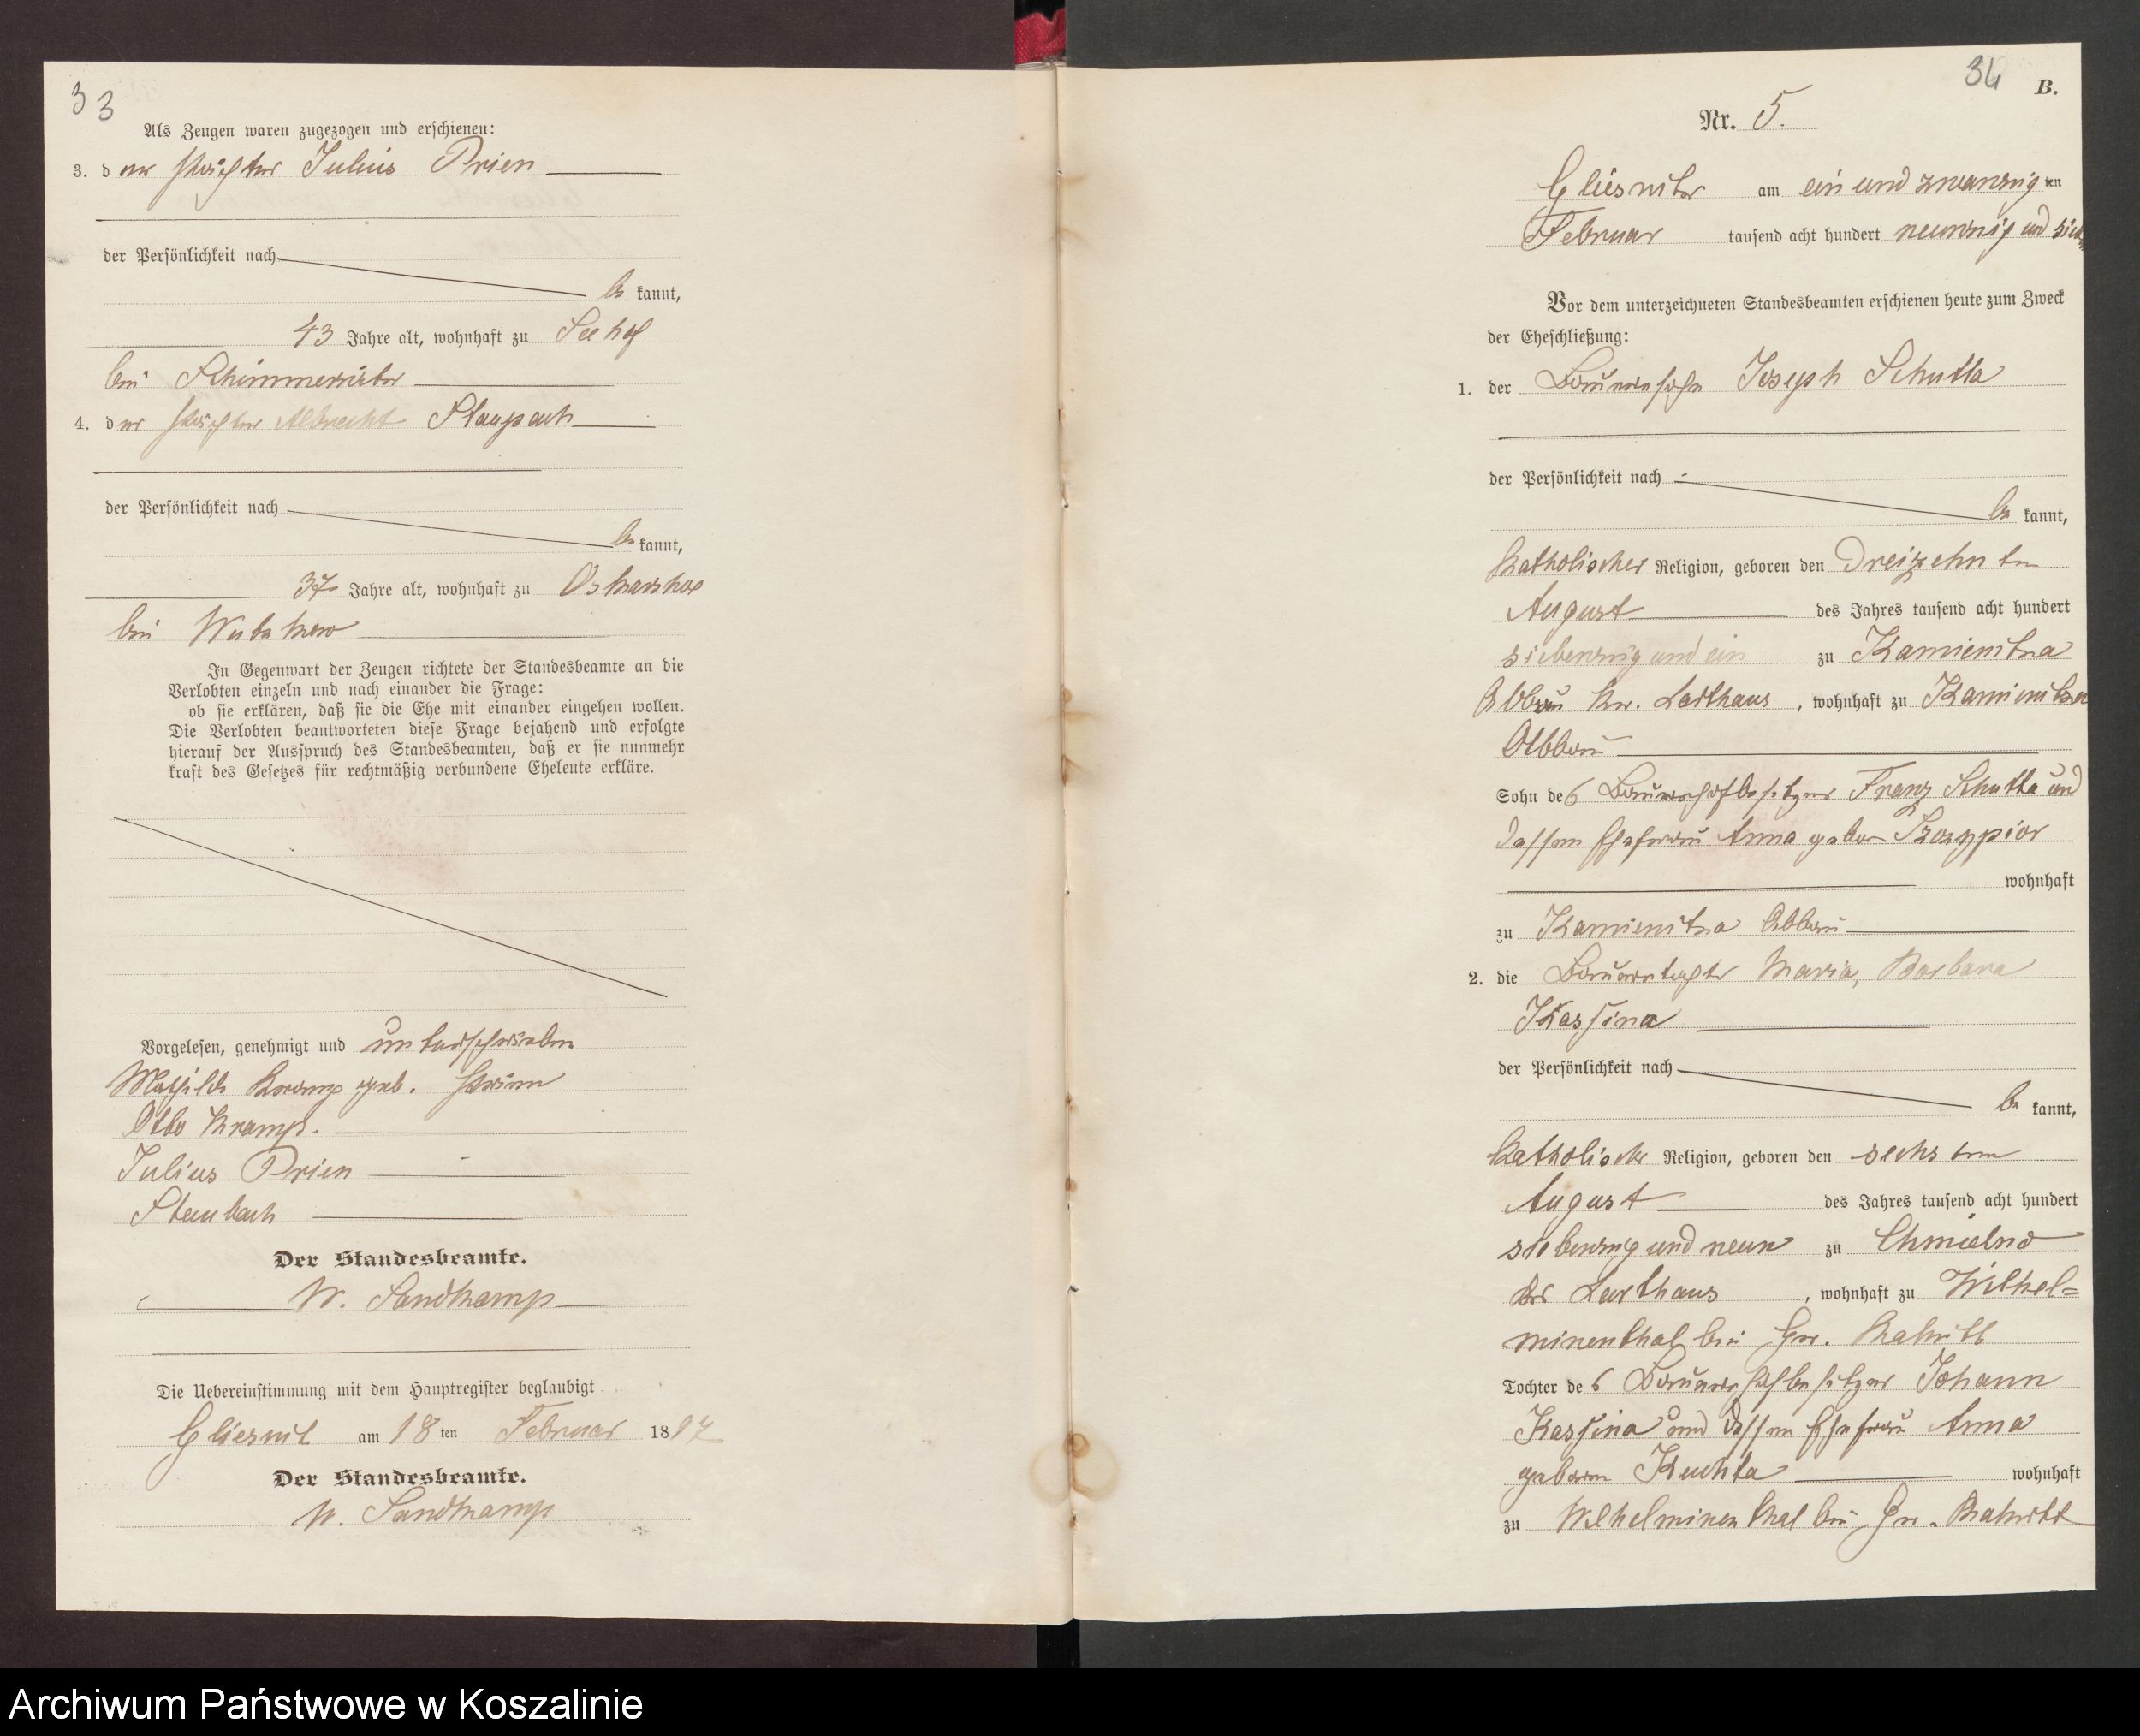 33
Als Zeugen waren zugezogen und erschienen:
3. der Pächter Julius Prien
der Persönlichkeit nach
be kannt,
43 Jahre alt, wohnhaft zu Seehof
bei
4. der Pächter Albrecht
der Persönlichkeit nach
be kannt,
37 Jahre alt, wohnhaft zu
bei
In Gegenwart der Zeugen richtete der Standesbeamte an die
Verlobten einzeln und nach einander die Frage:
ob sie erklären, daß sie die Ehe mit einander eingehen wollen.
Die Verlobten beantworteten diese Frage bejahend und erfolgte
hierauf der Ausspruch des Standesbeamten, daß er sie nunmehr
kraft des Gesetzes für rechtmäßig verbundene Eheleute erkläre.
Vorgelesen, genehmigt und unterschrieben
Mathilde Kramp geb. Prien
Otto Kramp.
Julius Prien
Der Standesbeamte.
W. Sandkamp
Die Uebereinstimmung mit dem Hauptregister beglaubigt
Gliesnitz am 18 ten Februar 1897
Der Standesbeamte.
W. Sandkamp
34 B.
Nr. 5.
Gliesnitz am ein und zwanzig ten
Februar tausend acht hundert neunzig und sieben
Vor dem unterzeichneten Standesbeamten erschienen heute zum Zweck
der Eheschließung:
1. der Bauernsohn Joseph Schutta
der Persönlichkeit nach
be kannt,
katholischer Religion, geboren den dreizehnten
August des Jahres tausend acht hundert
siebenzig und ein zu Kamienitza
Abbau Kr. Carthaus, wohnhaft zu Kamienitza
Abbau
Sohn des Bauernhofbesitzers Franz Schutta und
dessen Ehefrau Anna geboren
wohnhaft
zu Kamienitza Abbau
2. die Bauerntochter Maria, Barbara
Kassina
der Persönlichkeit nach
be kannt,
katholischer Religion, geboren den sechsten
August des Jahres tausend acht hundert
siebenzig und neun zu Chmielno
Carthaus, wohnhaft zu Wilhel=
minenthal bei Gr. Rakitt
Tochter des Bauernhofbesitzers Johann
Kassina und dessen Ehefrau Anna
geboren Kuchta wohnhaft
zu Wilhelminenthal bei Gr. Rakitt
Archiwum Państwowe w Koszalinie